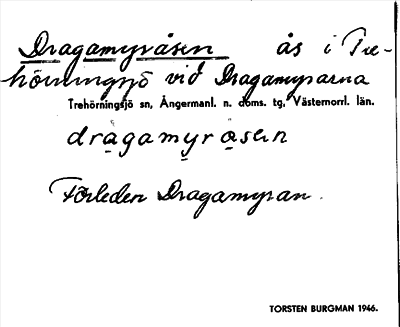 Dragamyråsen ås i Tre-
hörningsjö vid Dragamyrarna
Trehörningsjö sn, Ångermanl. n. doms. tg. Västernorrl. län.
dragamyråsen
Förleden Dragamyran.
TORSTEN BURGMAN 1946.